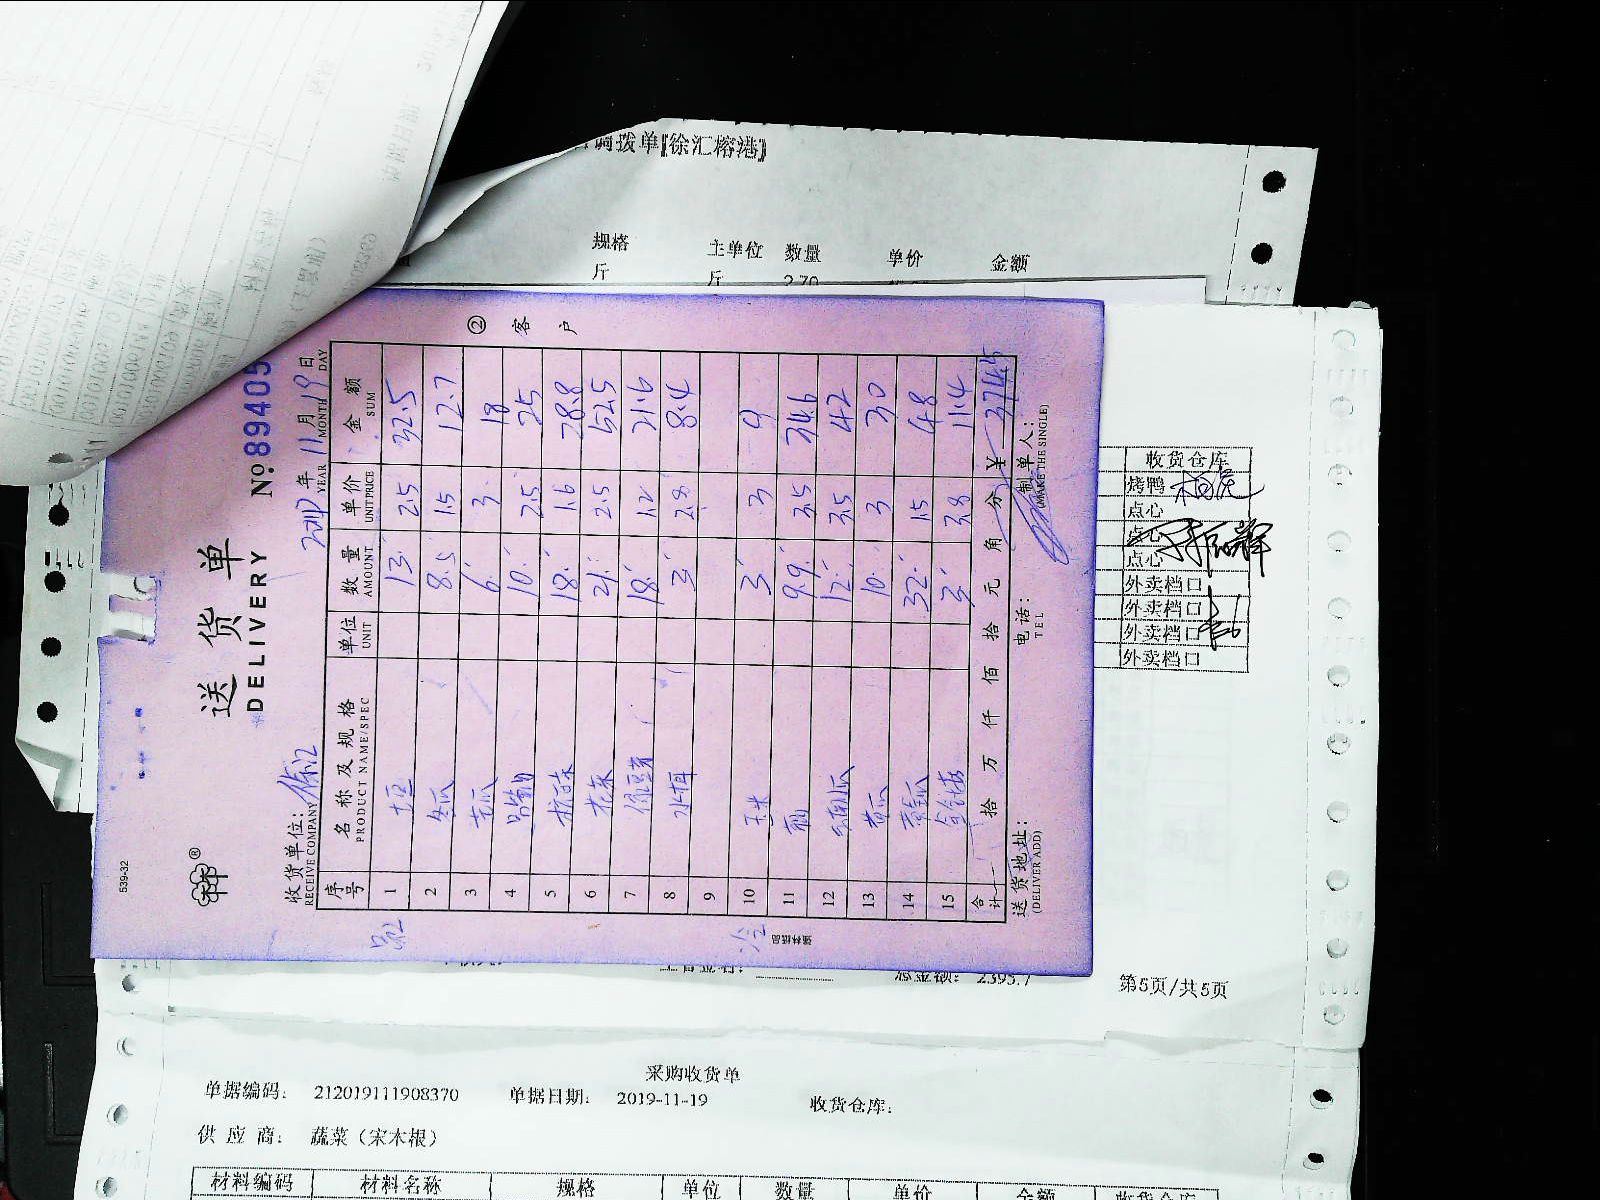 调拨单[徐汇榕港]
规格 主单位 数量 单价 金额
斤 斤 2.70
539-32
送货单
DELIVERY
№ 89405
收货单位: 徐汇
RECEIVE COMPANY
2019年 11月 19日
YEAR MONTH DAY
② 客户
序号 名称及规格 单位 数量 单价 金额
PRODUCT NAME/SPEC UNIT AMOUNT UNIT PRICE SUM
1 土豆 13 2.5 32.5
2 冬瓜 8.5 1.5 12.7
3 苦瓜 6 3 18
4 10 2.5 25
5 18 1.6 28.8
6 花菜 21 2.5 52.5
7 绿豆芽 18 1.2 21.6
8 木耳 3 2.8 8.4
9
10 玉米 3 3 9
11 9.9 3.5 34.6
12 南瓜 12 3.5 42
13 黄瓜 10 3 30
14 32 1.5 48
15 金针菇 3 3.8 11.4
合计 拾 万 仟 佰 拾 元 角 分 ¥ 374.5
送货地址: 电话: 制单人:
(DELIVER ADD) TEL (MAKE THE SINGLE)
收货仓库
烤鸭
点心
点心
点心
外卖档口
外卖档口
外卖档口
外卖档口
总金额: 2393.7 第5页/共5页
采购收货单
单据编码: 212019111908370 单据日期: 2019-11-19 收货仓库:
供应商: 蔬菜(宋木根)
材料编码 材料名称 规格 单位 数量 单价 金额 收货仓库